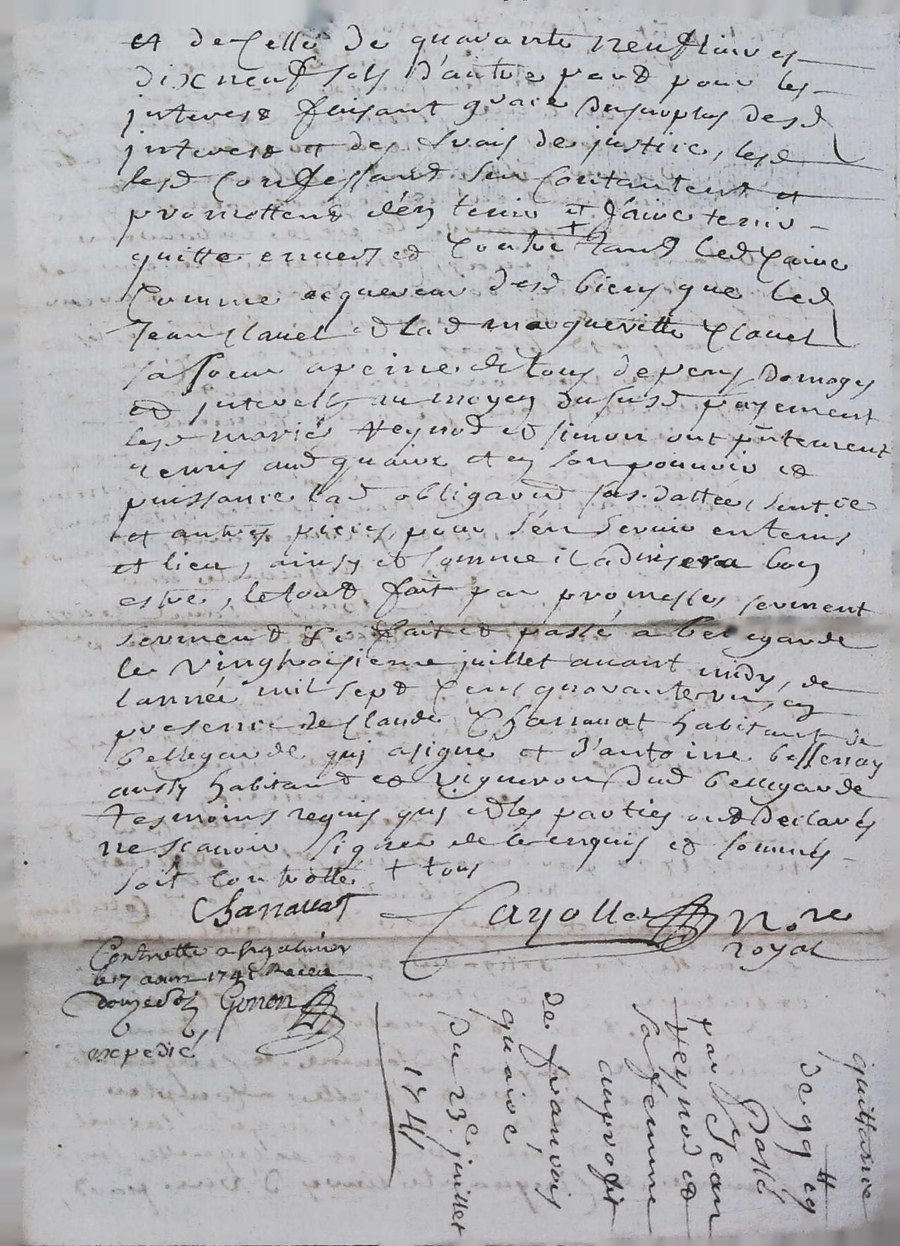 et de celle de quarante neuf livres
dix neuf sols d'autre part pour les
interest faisant grace du surplus desd
interest et des frais de justice, lesd
lesd confessant sen contantent et
promettent d'en tenir et faire tenir
quitte envers et contre + tous led
comme acquereur desd biens que led
Jean Clauel et lad margueritte Clauel
sa soeur a peine de tous depens domages
et interests au moyen du susd payement
lesd mariés Veynod et simon ont pntement
remis aud quaire et en son pouvoir et
puissance lad obligaōn sus dattée, sentce
et autres pieces pour s'en servir en tems
et lieu, ainsy et comme il advisera bon
estre, le tout fait par promesses serment
serment fait et passé a bellegarde
le vingtroisieme juillet avant midy, de
l'année mil sept cens quarante un, en
presence de Claude Charrauat habitant de
bellegarde qui a signé et d'antoine bessenay
aussy habitant et vigneron dud bellegarde
tesmoins requis qui et les parties ont declarés
ne scavoir signer de ce enquis et sommés
soit controllé + tous
Charrauat Cayolle N.re
royal
Controllé a
le 7 aoust 1741 Receu
douze sols Gonon
expedié
quittance
de 99 lt 19
Passé
par Jean
Veynod et
sa femme
au profit
de francois
quaire
Du 23.e juillet
1741